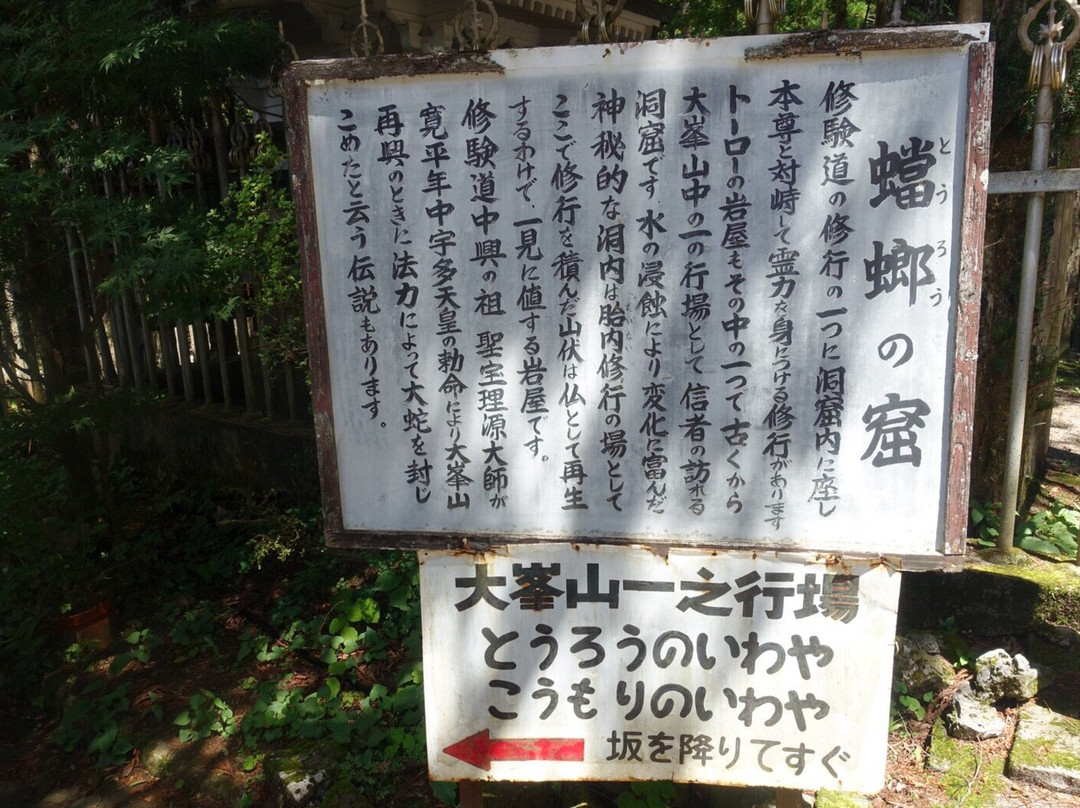 蟷螂の窟
とうろう
修験道の修行の一つに洞窟内に座し
本尊と対峙して霊力を身につける修行があります
トーローの岩屋もその中の一つで古くから
大峯山中の一の行場として信者の訪れる
洞窟です。水の浸蝕により変化に富んだ
神秘的な洞内は胎内修行の場として
ここで修行を積んだ山伏は仏として再生
するわけで、一見に値する岩屋です。
修験道中興の祖 聖宝理源大師が
寛平年中宇多天皇の勅命により大峯山
再興のときに法力によって大蛇を封じ
こめたと云う伝説もあります。
大峯山一之行場
とうろうのいわや
こうもりのいわや
坂を降りてすぐ